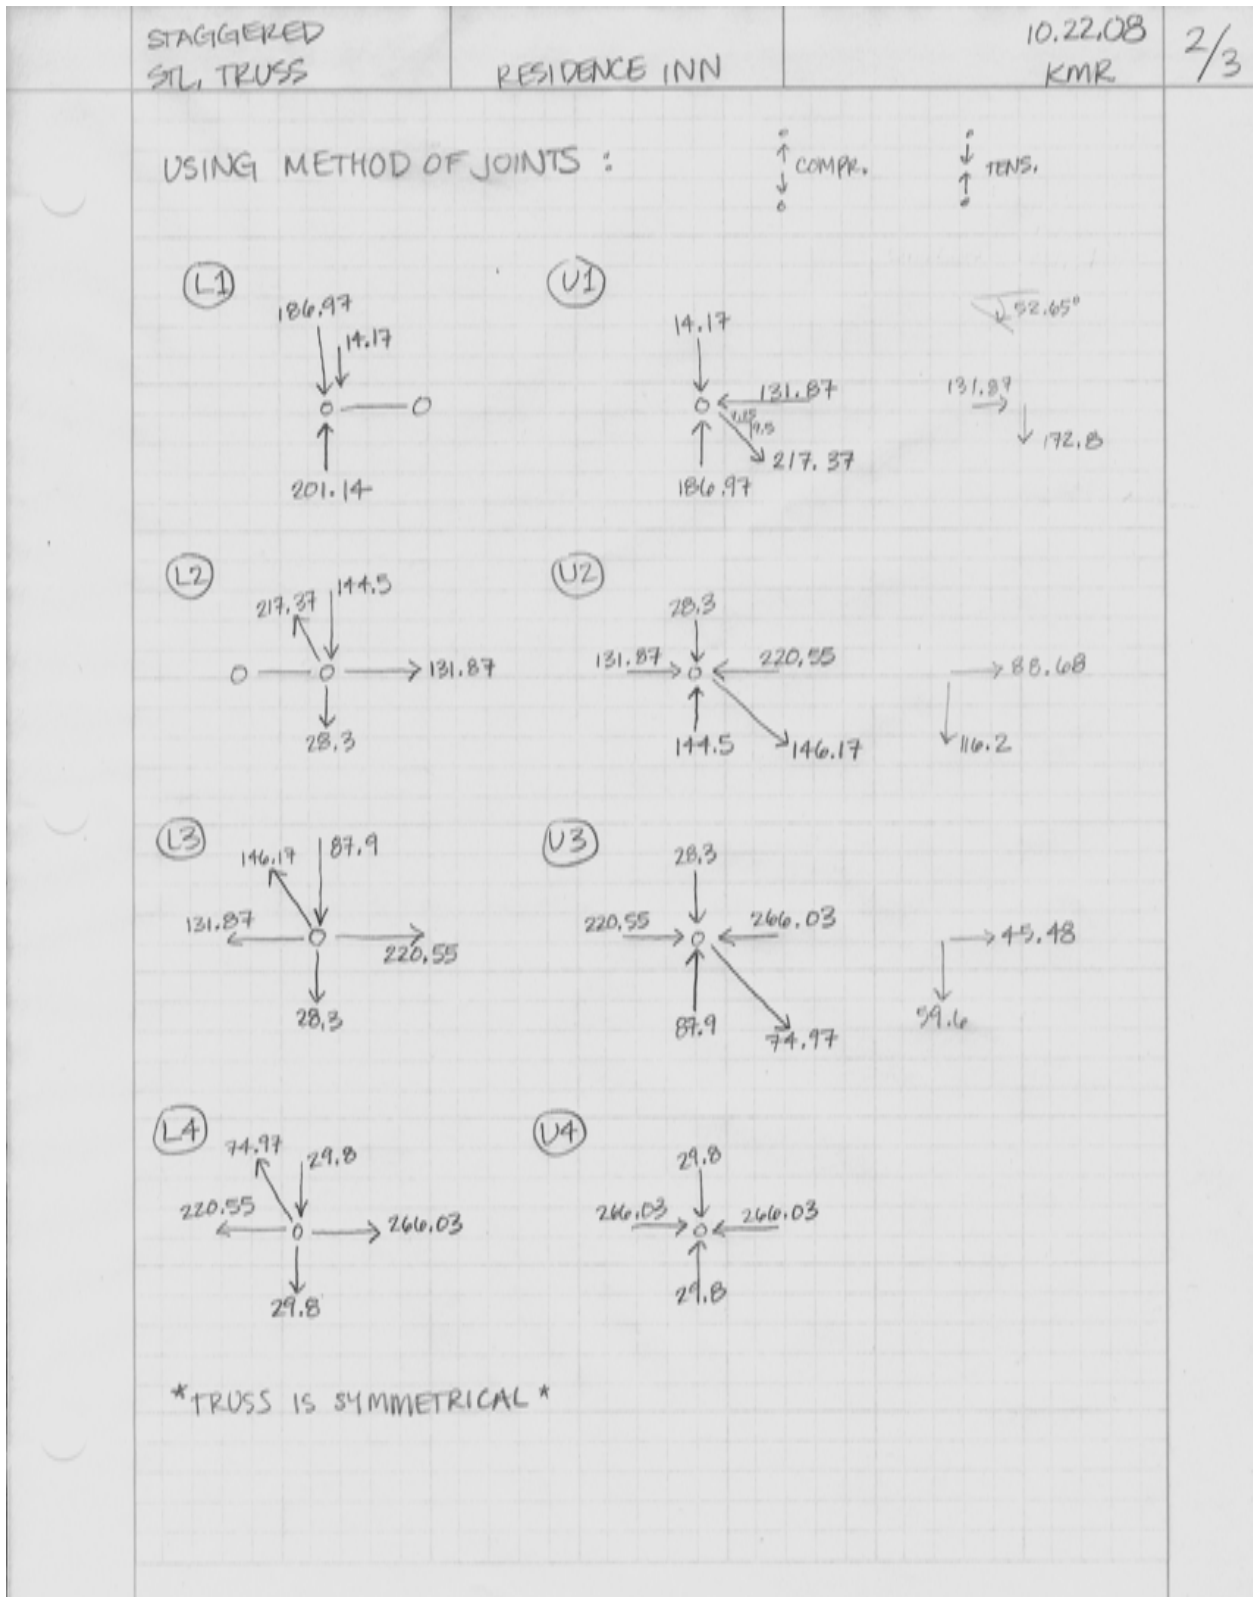 STAGGERED
STL. TRUSS
RESIDENCE INN
10.22.08
KMR
2/3
USING METHOD OF JOINTS :
COMPR.
TENS.
L1
186.97
14.17
201.14
U1
14.17
131.87
7.25
9.5
217.37
186.97
52.65°
131.87
172.8
L2
217.37
144.5
131.87
28.3
U2
28.3
131.87
220.55
144.5
146.17
88.68
116.2
L3
146.17
87.9
131.87
220.55
28.3
U3
28.3
220.55
266.03
87.9
74.97
45.48
59.6
L4
74.97
29.8
220.55
266.03
29.8
U4
29.8
266.03
266.03
29.8
*TRUSS IS SYMMETRICAL*